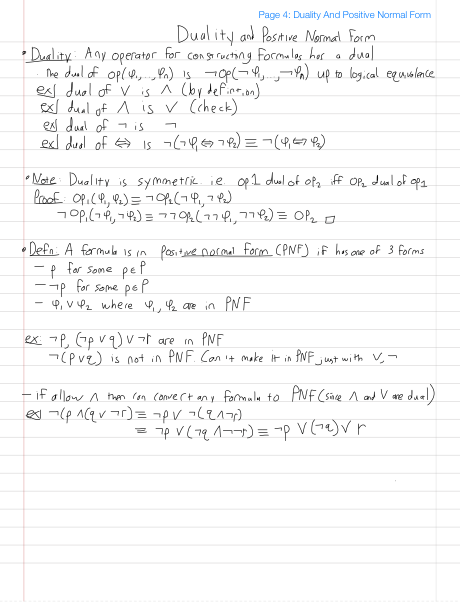 Page 4: Duality And Positive Normal Form
Duality and Positive Normal Form
• Duality: Any operator for constructing formulas has a dual
- The dual of op(φ₁,...,φₙ) is ¬op(¬φ₁,...,¬φₙ) up to logical equivalence
ex| dual of ∨ is ∧ (by definition)
ex| dual of ∧ is ∨ (check)
ex| dual of ¬ is ¬
ex| dual of ⇔ is ¬(¬φ₁ ⇔ ¬φ₂) ≡ ¬(φ₁ ⇔ φ₂)
• Note: Duality is symmetric. i.e. op1 dual of op₂ iff op₂ dual of op1
Proof: op₁(φ₁, φ₂) ≡ ¬op₂(¬φ₁, ¬φ₂)
¬op₁(¬φ₁, ¬φ₂) ≡ ¬¬op₂(¬¬φ₁, ¬¬φ₂) ≡ op₂ □
• Defn: A formula is in positive normal form (PNF) if has one of 3 forms
- p for some p∈P
- ¬p for some p∈P
- φ₁ ∨ φ₂ where φ₁, φ₂ are in PNF
ex: ¬p, (¬p ∨ q) ∨ ¬r are in PNF
¬(p∨q) is not in PNF. Can't make it in PNF just with ∨, ¬
- if allow ∧ then can convert any formula to PNF (since ∧ and ∨ are dual)
ex| ¬(p ∧ (q ∨ ¬r)) ≡ ¬p ∨ ¬(q ∧ ¬r)
≡ ¬p ∨ (¬q ∧ ¬¬r) ≡ ¬p ∨ (¬q) ∨ r